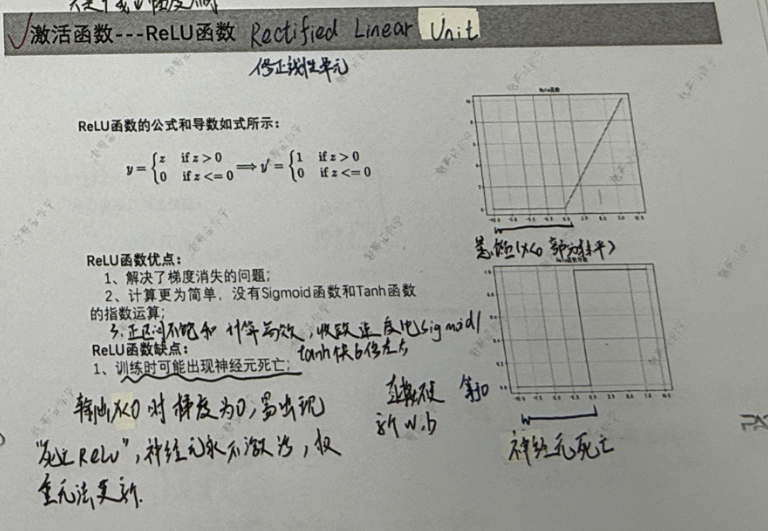 激活函数---ReLU函数 Rectified Linear Unit
修正线性单元
ReLU函数的公式和导数如式所示：
y = { z if z > 0
0 if z <= 0 ⟹ y' = { 1 if z > 0
0 if z <= 0
Relu函数
ReLU函数优点：
1、解决了梯度消失的问题；
2、计算更为简单，没有Sigmoid函数和Tanh函数
的指数运算；
3.正区间不饱和 计算高效，收敛速度比Sigmoid/
tanh快6倍左右
ReLU函数缺点：
1、训练时可能出现神经元死亡；
输出x<0时梯度为0，易出现
"死亡ReLU"，神经元永不激活，权
重无法更新.
等于0
新 w.b
神经元死亡